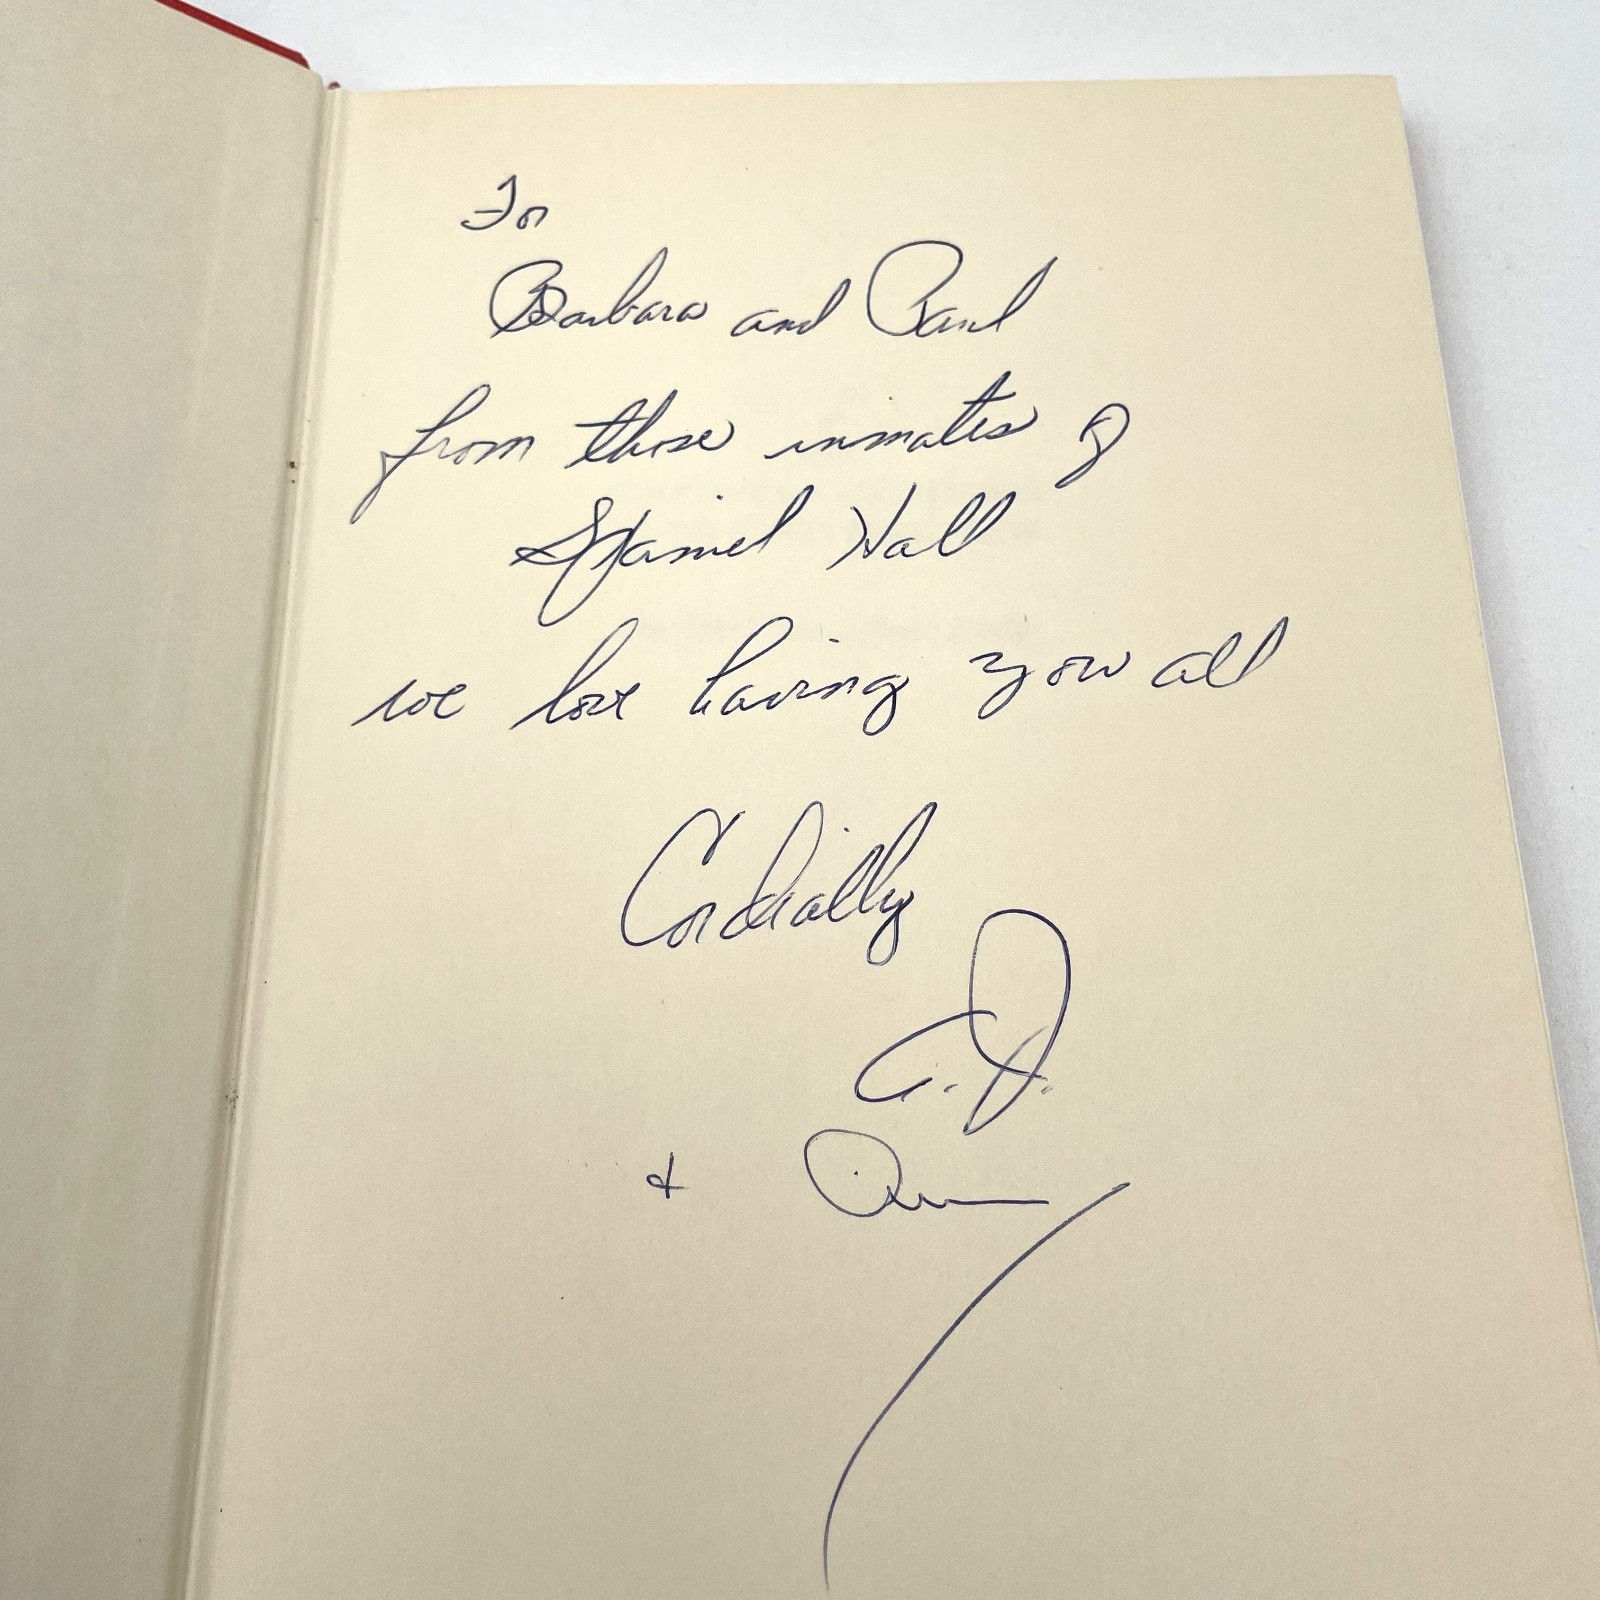 For
Barbara and Paul
from those inmates of
Spaniel Hall
we love having you all
Cordially
C. D.
&